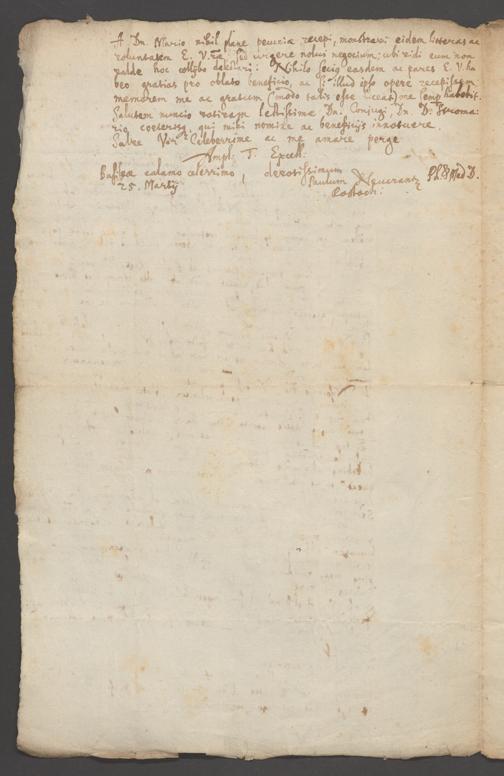 A Dn. Mario nihil plane pecuniæ recepi, monstravi eidem litteras ac
voluntatem E. V. sed urgere nolui negocium; ubi vidi eum non
valde hoc delectari: Nihilo secius easdem ac pares E. V. ha
beo gratias pro oblato beneficio, ac si illud ipso opere recepissem
memorem me ac gratum (modo talis esse queat) me semp habebit.
Salutem nuncio votivam Lectissimæ Dn. Conjugi, Dn. D.
rio cœterisq. qui mihi nomine ac beneficijs innotuere.
Salve Vir Celeberrime ac me amare perge
Ampl. T. Excell.
calamo celerrimo, devotissimum
25. Martij Paulum Med D.
Rostoch.